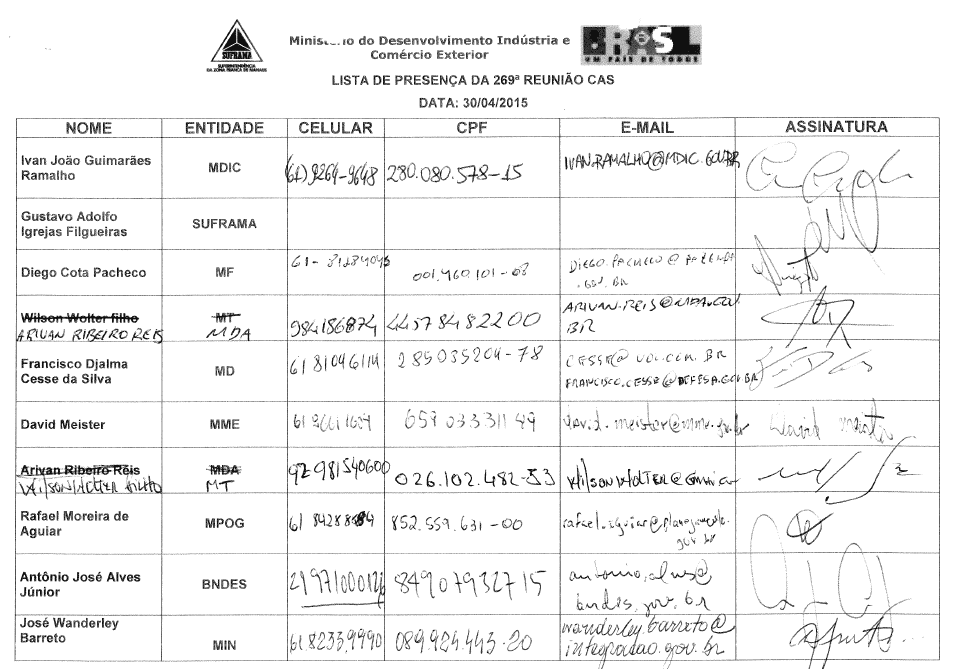 SUFRAMA
SUPERINTENDÊNCIA
DA ZONA FRANCA DE MANAUS
do Desenvolvimento Indústria e
Comércio Exterior
BRASIL
UM PAÍS DE TODOS
LISTA DE PRESENÇA DA 269ª REUNIÃO CAS
DATA: 30/04/2015
NOME ENTIDADE CELULAR CPF E-MAIL ASSINATURA
Ivan João Guimarães
Ramalho
MDIC (61) 9264-9648 280.080.578-15 IVAN.RAMALHO@MDIC.GOV.BR
Gustavo Adolfo
Igrejas Filgueiras
SUFRAMA
Diego Cota Pacheco MF 001.460.101-08 DIEGO.PACHECO@FAZENDA
.GOV.BR
Wilson Wolter filho MT
ARIVAN RIBEIRO REIS MDA 984156874 44578482200 ARIVAN.REIS@MDA.GOV
BR
Francisco Djalma
Cesse da Silva
MD 285035204-78 CESSE@UOL.COM.BR
FRANCISCO.CESSE@DEFESA.GOV.BR
David Meister MME 659 033331 49 david.meister@mme.gov.br David Meister
Arivan Ribeiro Reis MDA
WILSON WOLTER FILHO MT 92981540600 026.102.482-53
Rafael Moreira de
Aguiar
MPOG 852.559.631-00 rafael.aguiar@planejamento.
gov.br
Antônio José Alves
Júnior
BNDES 84907932715 antonio.alves@
bndes.gov.br
José Wanderley
Barreto
MIN 61.82339990 089.924.443-20 wanderley.barreto@
integracao.gov.br